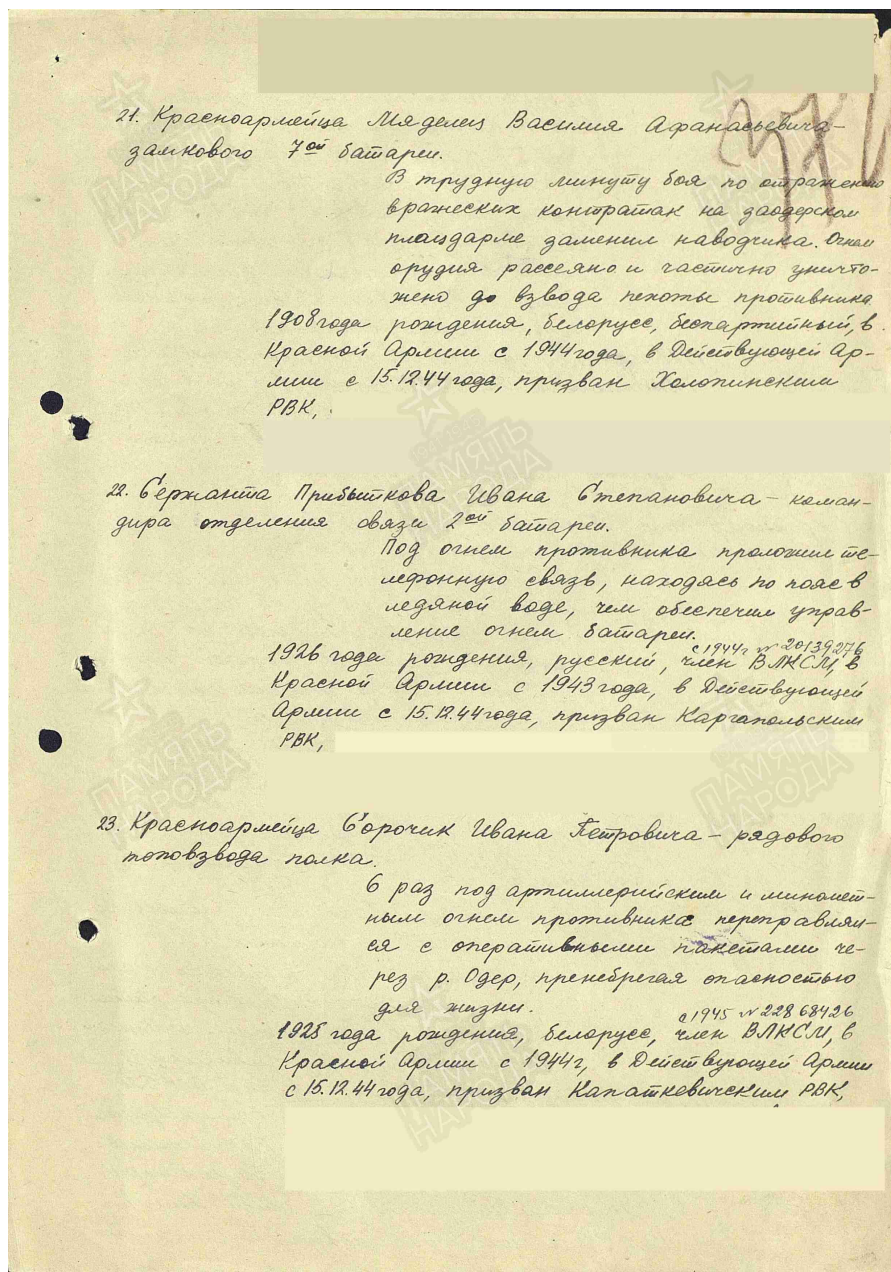 21. Красноармейца Мяделец Василия Афанасьевича –
замкового 7ой батареи.
В трудную минуту боя по отражению
вражеских контратак на заодерском
плацдарме заменил наводчика. Огнем
орудия рассеяно и частично уничто-
жено до взвода пехоты противника
1908 года рождения, белорусс, беспартийный, в
Красной Армии с 1944 года, в Действующей Ар-
мии с 15.12.44 года, призван Холопинским
РВК,
22. Сержанта Прибыткова Ивана Степановича – коман-
дира отделения связи 2ой батареи.
Под огнем противника проложил те-
лефонную связь, находясь по пояс в
ледяной воде, чем обеспечил управ-
ление огнем батареи.
с 1944 г № 20139276
1926 года рождения, русский, член ВЛКСМ, в
Красной Армии с 1943 года, в Действующей
Армии с 15.12.44 года, призван Каргапольским
РВК,
23. Красноармейца Сорочик Ивана Петровича – рядового
топовзвода полка.
6 раз под артиллерийским и миномет-
ным огнем противника переправлял-
ся с оперативными пакетами че-
рез р. Одер, пренебрегая опасностью
для жизни.
с 1945 № 22868426
1925 года рождения, белорусс, член ВЛКСМ, в
Красной Армии с 1944 г, в Действующей Армии
с 15.12.44 года, призван Капаткевичским РВК,
ПАМЯТЬ НАРОДА